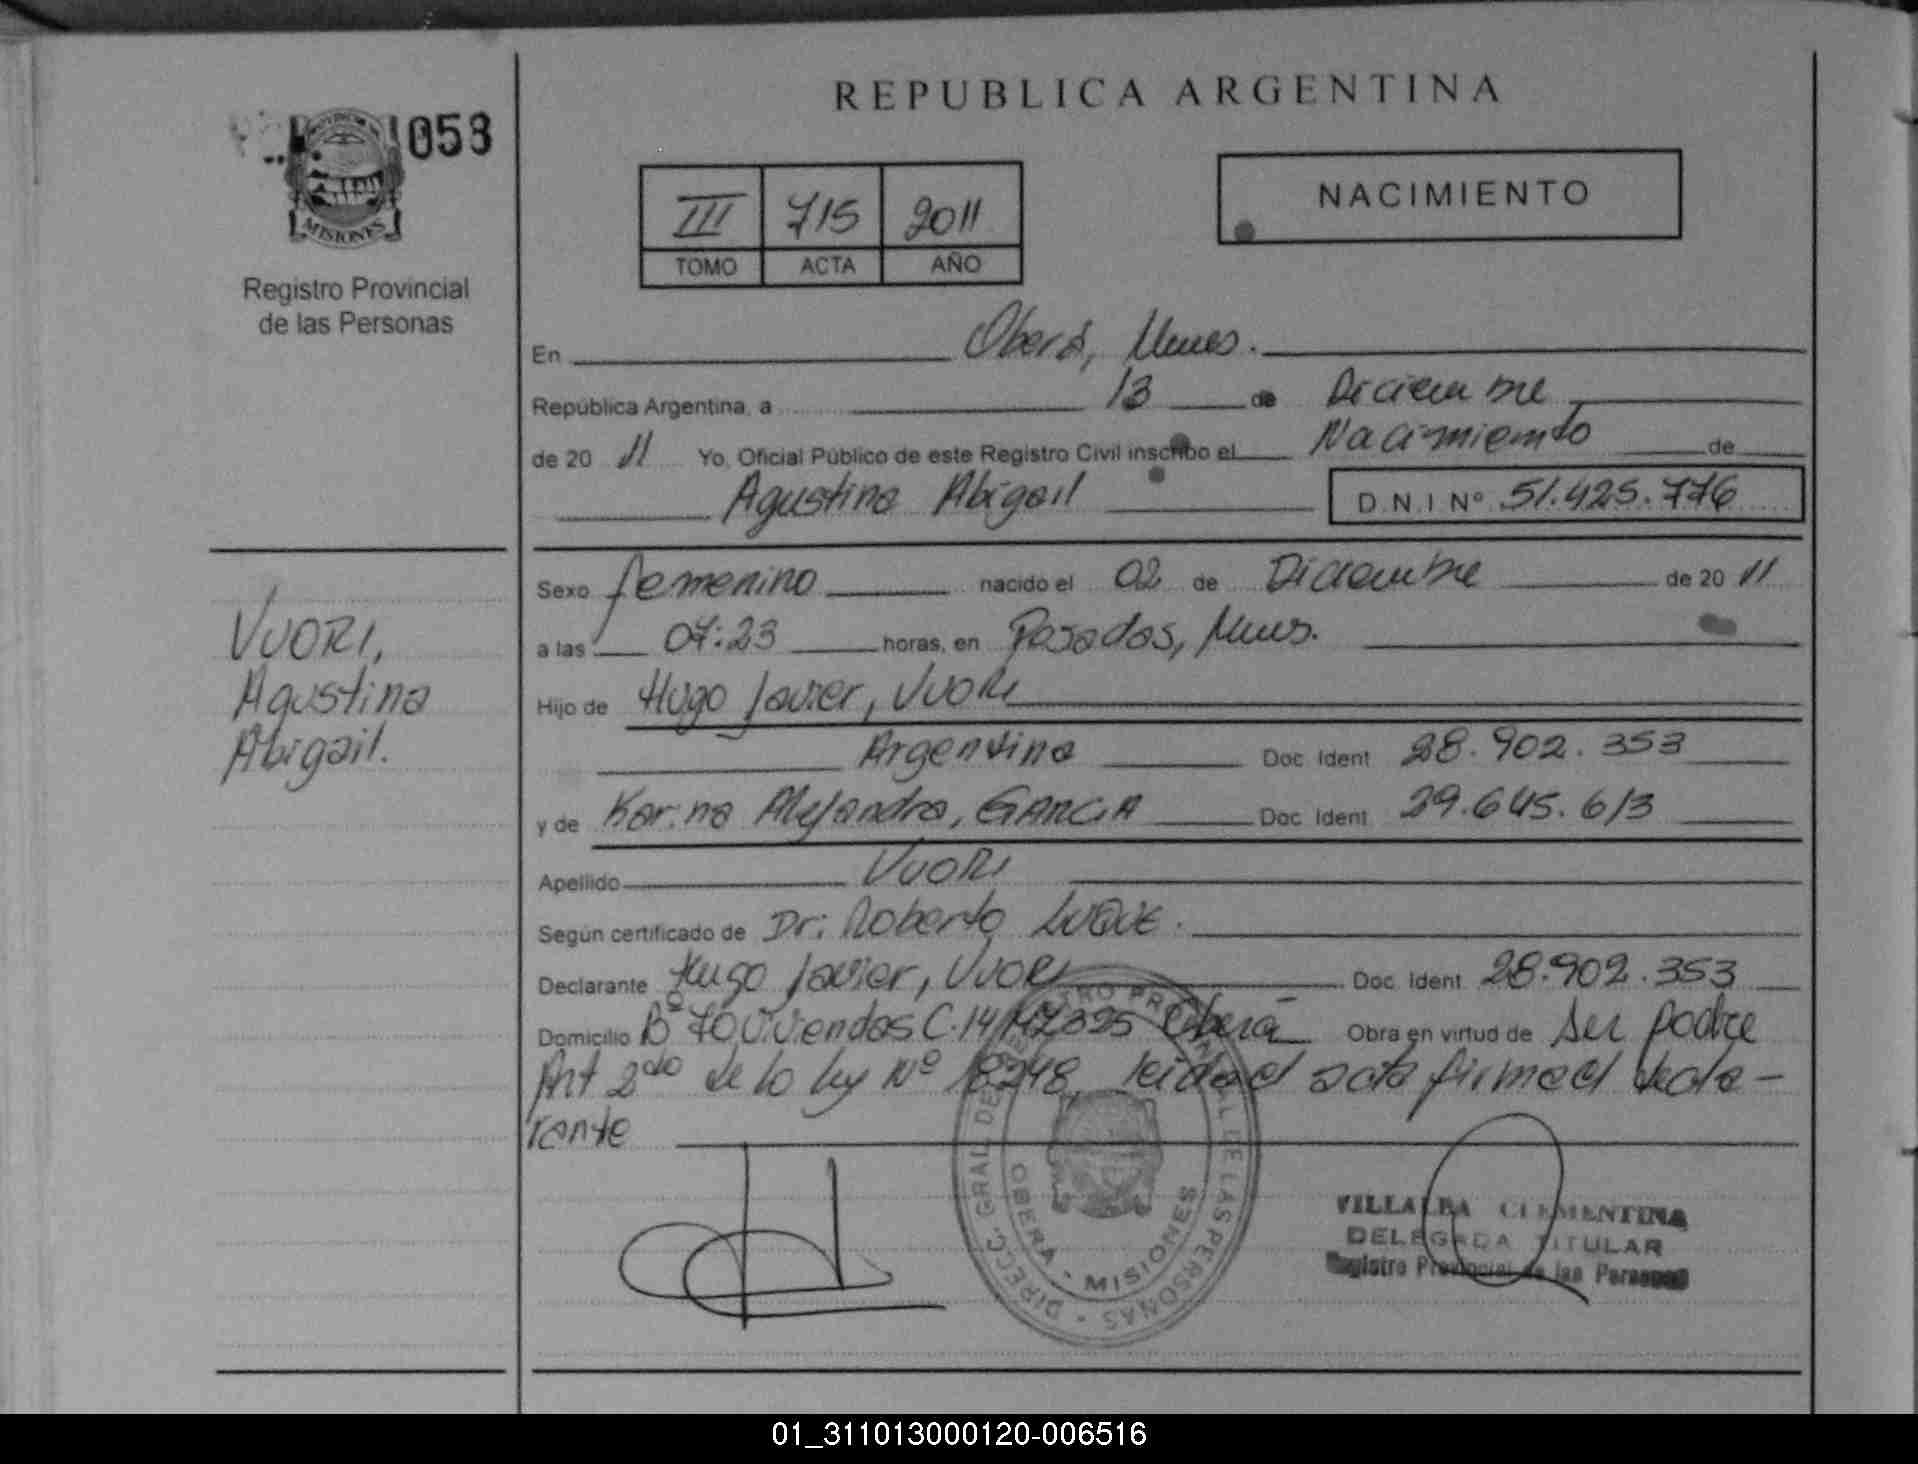 REPUBLICA ARGENTINA
053
MISIONES
Registro Provincial
de las Personas
III 715 2011
TOMO ACTA AÑO
NACIMIENTO
En Oberá, Mnes.
República Argentina, a 13 de Diciembre
de 20 11 Yo, Oficial Público de este Registro Civil inscribo el Nacimiento de
Agustina Abigail D.N.I Nº 51.425.776
Sexo femenino nacido el 02 de Diciembre de 20 11
a las 07:23 horas, en Posadas, Mnes.
Hijo de Hugo Javier, VUORI
Argentina Doc. Ident 28.902.353
y de Karina Alejandra, GARCIA Doc. Ident 29.645.613
Apellido VUORI
Según certificado de Dr: Roberto LUQUE.
Declarante Hugo Javier, VUORI Doc. Ident 28.902.353
Domicilio Bº 70 Viviendas C.14 Oberá Obra en virtud de ser padre
Art 2do de la ley Nº 18248, leida el acta firma el decla-
rante
VUORI,
Agustina
Abigail.
DIRECC. GRAL. DEL REGISTRO PROVINCIAL DE LAS PERSONAS
OBERA - MISIONES
VILLALBA CLEMENTINA
DELEGADA TITULAR
Registro Provincial de las Personas
01_311013000120-006516